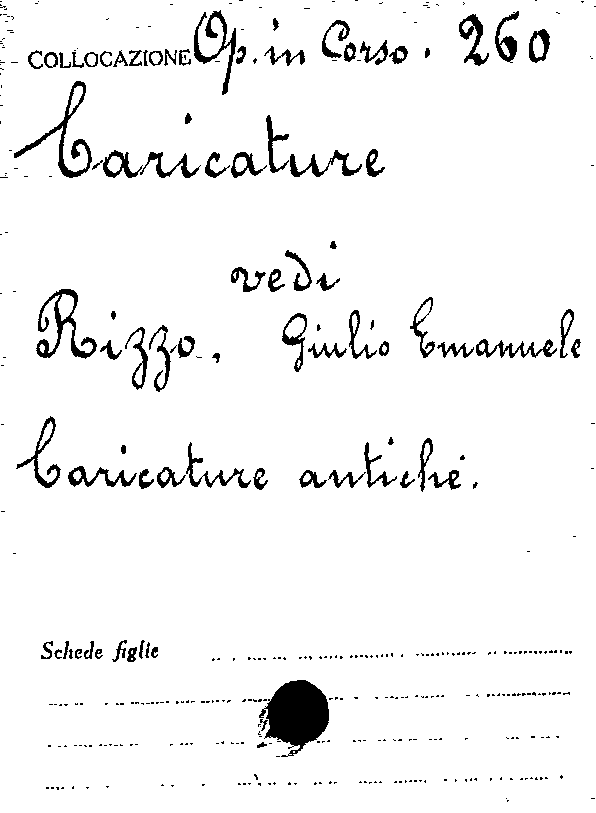 COLLOCAZIONE Op. in Corso. 260
Caricature
vedi
Rizzo, Giulio Emanuele
Caricature antiche.
Schede figlie